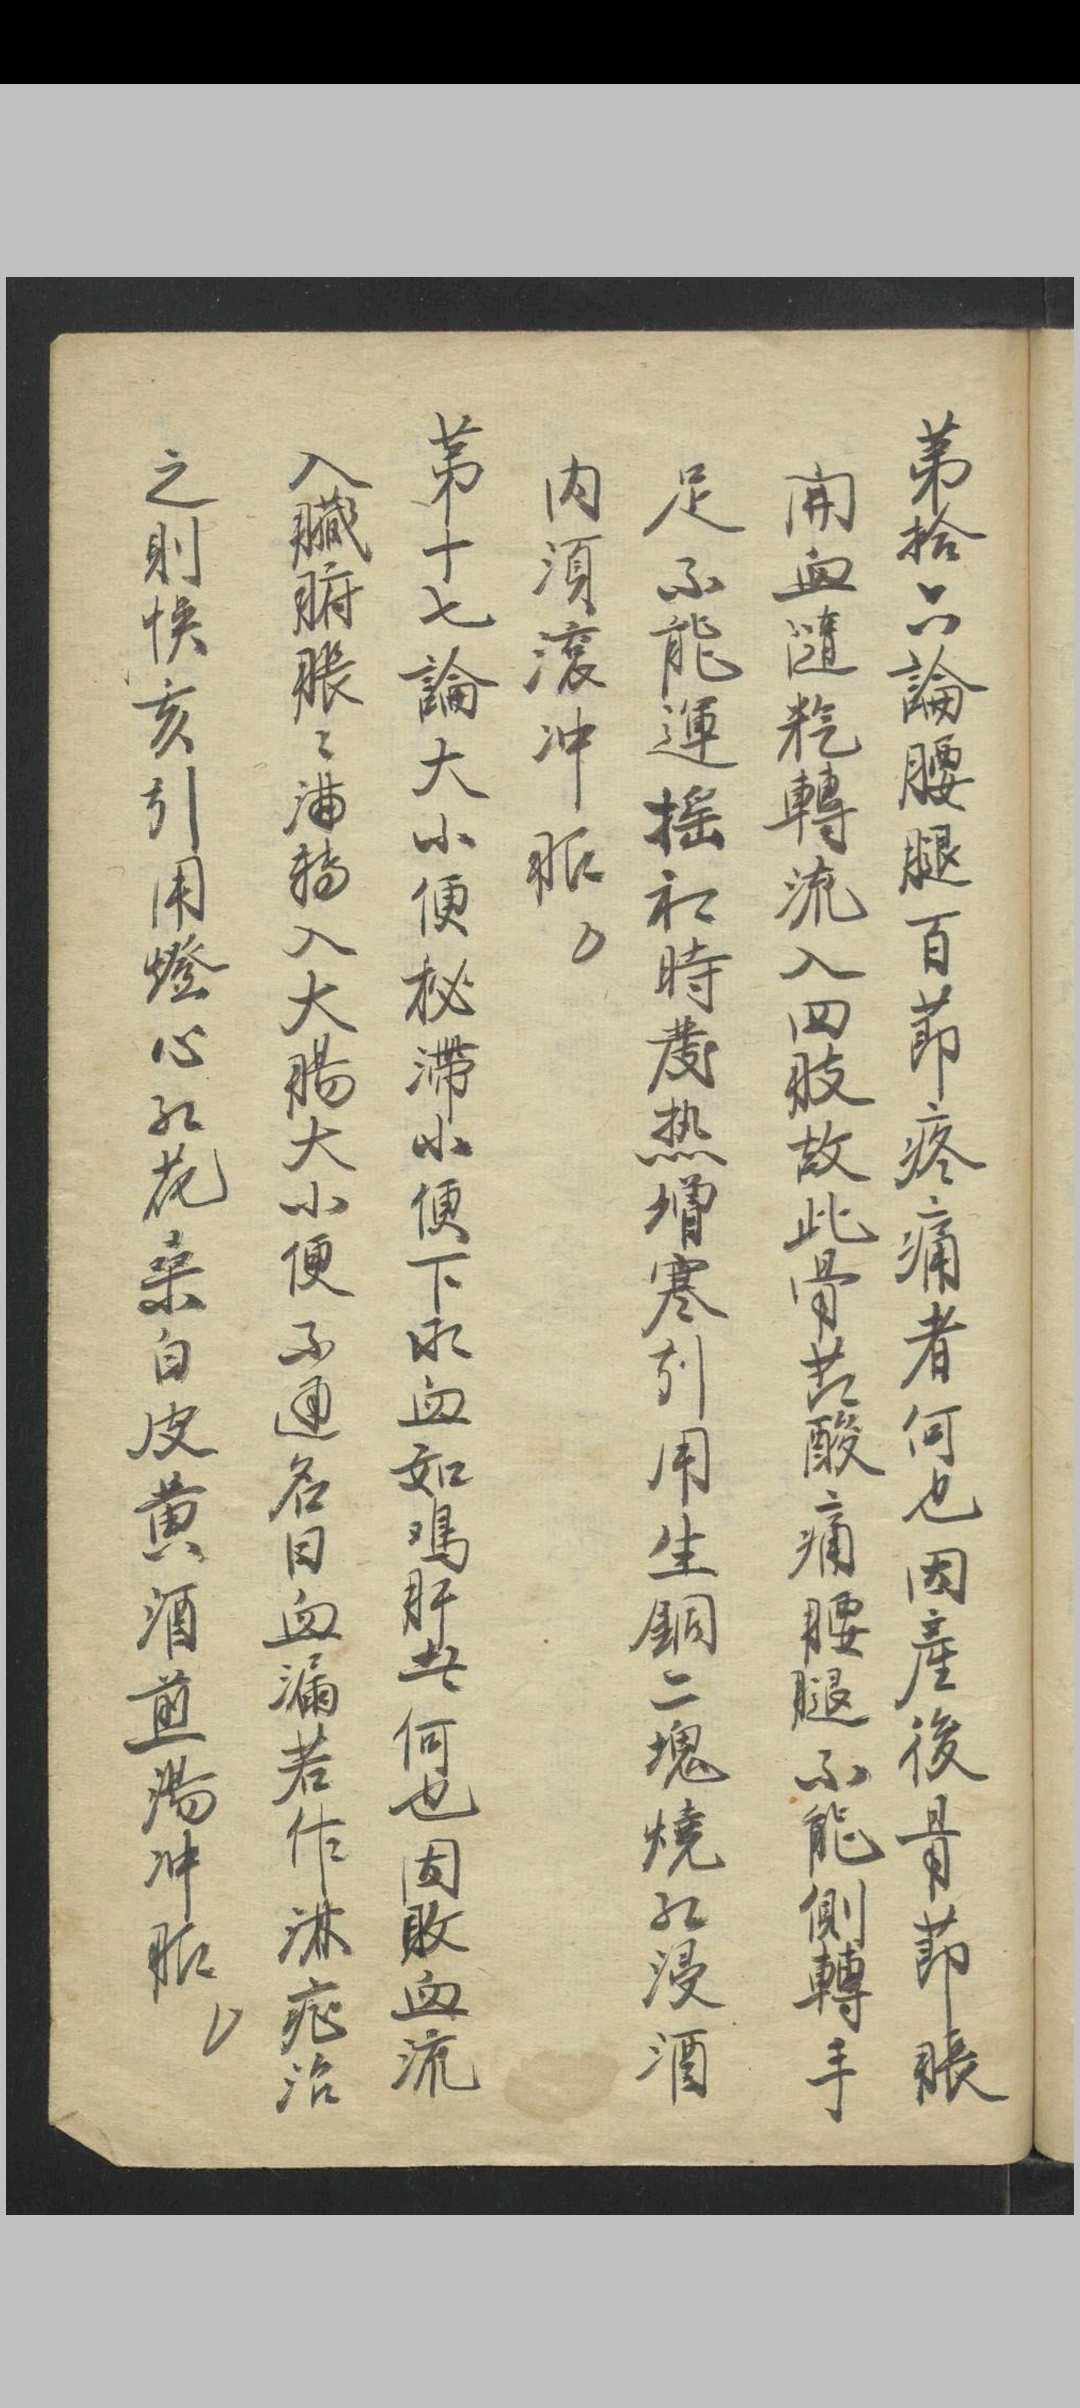 第拾六論腰腿百節疼痛者何也因產後骨節脹
開血隨粇轉流入四肢故此骨苦酸痛腰腿不能側轉手
足不能運摇初時發热增寒引用生銅二塊燒红浸酒
内須滚冲服
第十七論大小便秘滯小便下水血如鳮肝者何也因敗血流
入臟腑脹〻满轉入大腸大小便不通名曰血漏若作淋症治
之則悮亥引用燈心红花桒白皮黄酒煎湯冲服